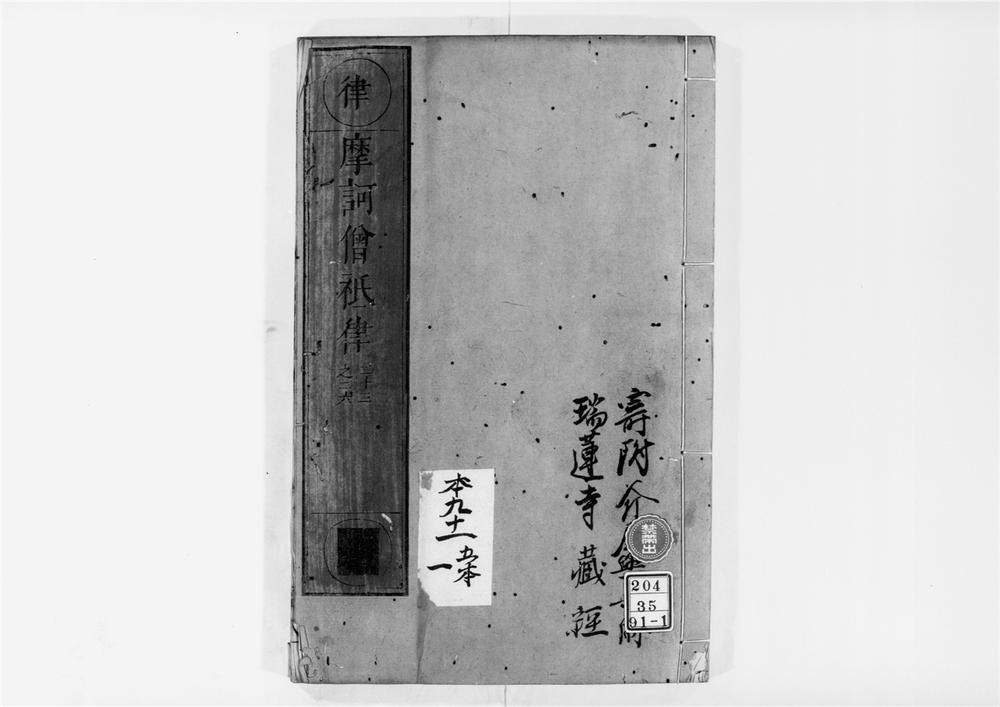 律
摩訶僧祇律
二十三
之二六
寄附
瑞蓮寺 藏経
禁帯出
本九十一
五本
一
204
35
91-1